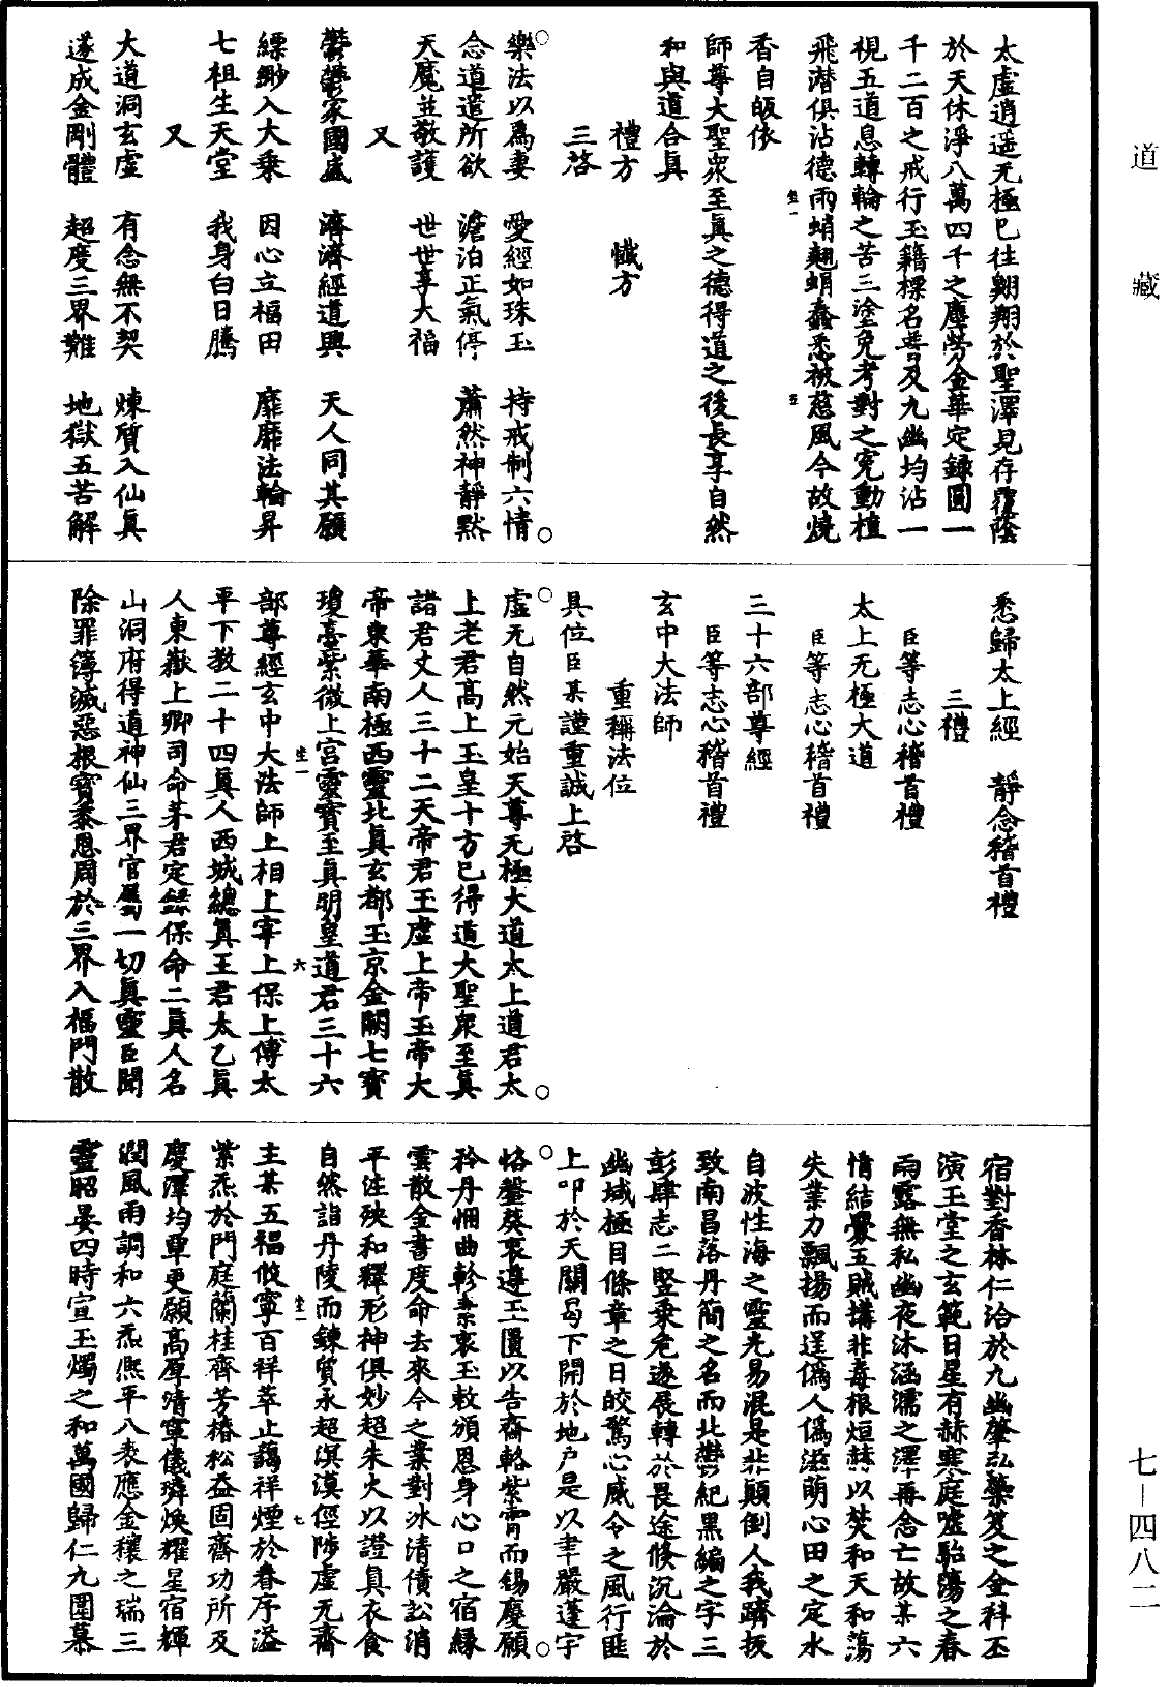 道藏
七—四八二
太虛逍遥无極已往翺翔於聖澤見存覆蔭
於天休淨八萬四千之塵勞金華定錄圓一
千二百之戒行玉籍標名普及九幽均沾一
視五道息轉輪之苦三塗免考對之寃動植
飛潜俱沾德雨蛸翹蜎蠢悉被慈風今故燒
香自皈依
師尊大聖衆至真之德得道之後長享自然
和與道合真
禮方　懺方
三啓
樂法以爲妻　愛經如珠玉　持戒制六情
念道遣所欲　澹泊正氣停　蕭然神靜默
天魔並敬護　世世享大福
又
鬱鬱家國盛　濟濟經道興　天人同其願
縹緲入大乗　因心立福田　靡靡法輪昇
七祖生天堂　我身白日騰
又
大道洞玄虛　有念無不契　煉質入仙真
遂成金剛體　超度三界難　地獄五苦解
悉歸太上經　靜念稽首禮
三禮
臣等志心稽首禮
太上无極大道
臣等志心稽首禮
三十六部尊經
臣等志心稽首禮
玄中大法師
重稱法位
具位臣某謹重誠上啓
虛无自然元始天尊无極大道太上道君太
上老君高上玉皇十方已得道大聖衆至真
諸君丈人三十二天帝君玉虛上帝玉帝大
帝東華南極西靈北真玄都玉京金闕七寶
瓊臺紫微上宫靈寶至真明皇道君三十六
部尊經玄中大法師上相上宰上保上傅太
平下教二十四真人西城總真王君太乙真
人東嶽上卿司命茅君定錄保命二真人名
山洞府得道神仙三界官屬一切真靈臣聞
除罪簿滅惡根寳黍恩周於三界入福門散
宿對香林仁洽於九幽肇弘藥笈之金科丕
演玉堂之玄範日星有赫寒庭嘘駘蕩之春
雨露無私幽夜沐涵濡之澤再念亡故某六
情結舋五賊媾非毒根烜赫以焚和天和蕩
失業力飄揚而逞僞人僞滋萌心田之定水
自波性海之靈光易混是非顛倒人我躋扳
致南昌落丹簡之名而北酆紀黑編之字三
彭肆志二竪乗危遂展轉於畏途倐沉淪於
幽域極目絛章之日皎驚心威令之風行匪
上叩於天關曷下開於地户是以聿嚴蓬宇
恪罄葵衷遵玉匱以告齋輅紫霄而錫慶願
矜丹悃曲軫衷玉敕頒恩身心口之宿緣
雲散金書度命去來今之業對冰清債訟消
平注殃和釋形神俱妙超朱火以證真衣食
自然詣丹陵而鍊質永超溟漠俓陟虛无齋
主某五福攸寧百祥萃止藹祥煙於春序溢
紫炁於門庭蘭桂齊芳椿松益固齋功所及
慶澤均覃更願高厚清寧儀璘煥耀星宿輝
潤風雨調和六炁熈平八表應金穰之瑞三
靈昭晏四時宣玉燭之和萬國歸仁九圍慕